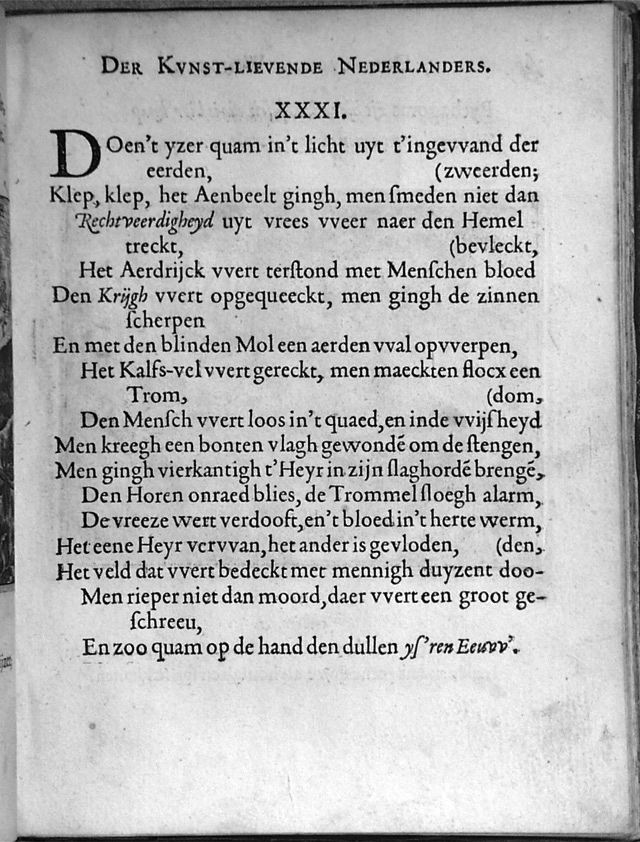 DER KVNST-LIEVENDE NEDERLANDERS.
XXXI.
DOen't yzer quam in't licht uyt t'ingevvand der
eerden, (zweerden;
Klep, klep, het Aenbeelt gingh, men ſmeden niet dan
Rechtveerdigheyd uyt vrees vveer naer den Hemel
treckt, (bevleckt,
Het Aerdrijck vvert terſtond met Menſchen bloed
Den Krijgh vvert opgequeeckt, men gingh de zinnen
ſcherpen
En met den blinden Mol een aerden vval opvverpen,
Het Kalfs-vel vvert gereckt, men maeckten flocx een
Trom, (dom,
Den Menſch vvert loos in't quaed, en in de vvijſheyd
Men kreegh een bonten vlagh gewondē om de ſtengen,
Men gingh vierkantigh t'Heyr in zijn ſlaghordē brengē,
Den Horen onraed blies, de Trommel ſloegh alarm,
De vreeze wert verdooft, en't bloed in't herte werm,
Het eene Heyr vervvan, het ander is gevloden, (den,
Het veld dat vvert bedeckt met mennigh duyzent doo-
Men rieper niet dan moord, daer vvert een groot ge-
ſchreeu,
En zoo quam op de hand den dullen yſ'ren Eeuvv'.